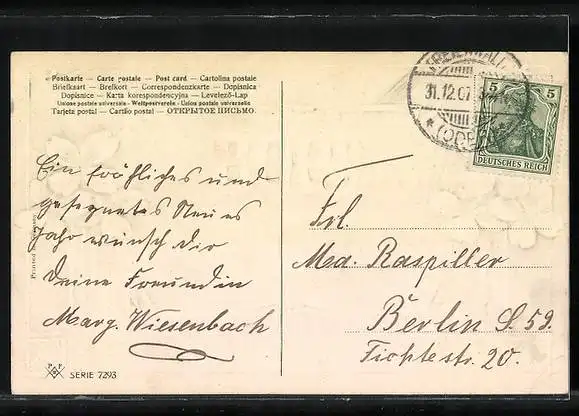 Postkarte — Carte postale — Post card — Cartolina postale
Briefkaart — Brefkort — Correspondenzkarte — Dopisnica
Dopisnice — Karta korespondencyjna — Levelező-Lap
Union postale universelle - Weltpostverein - Unione postale universale
Tarjeta postal — Cartão postal — ОТКРЫТОЕ ПИСЬМО.
31.12.07
* (ODER)
5 5
DEUTSCHES REICH
Ein fröhliches und
gesegnetes Neues
Jahr wünsch dir
deine Freundin
Marg. Wiesenbach
Frl.
Md. Raspiller
Berlin S. 59.
Fichtestr. 20.
Printed in
SERIE 7293